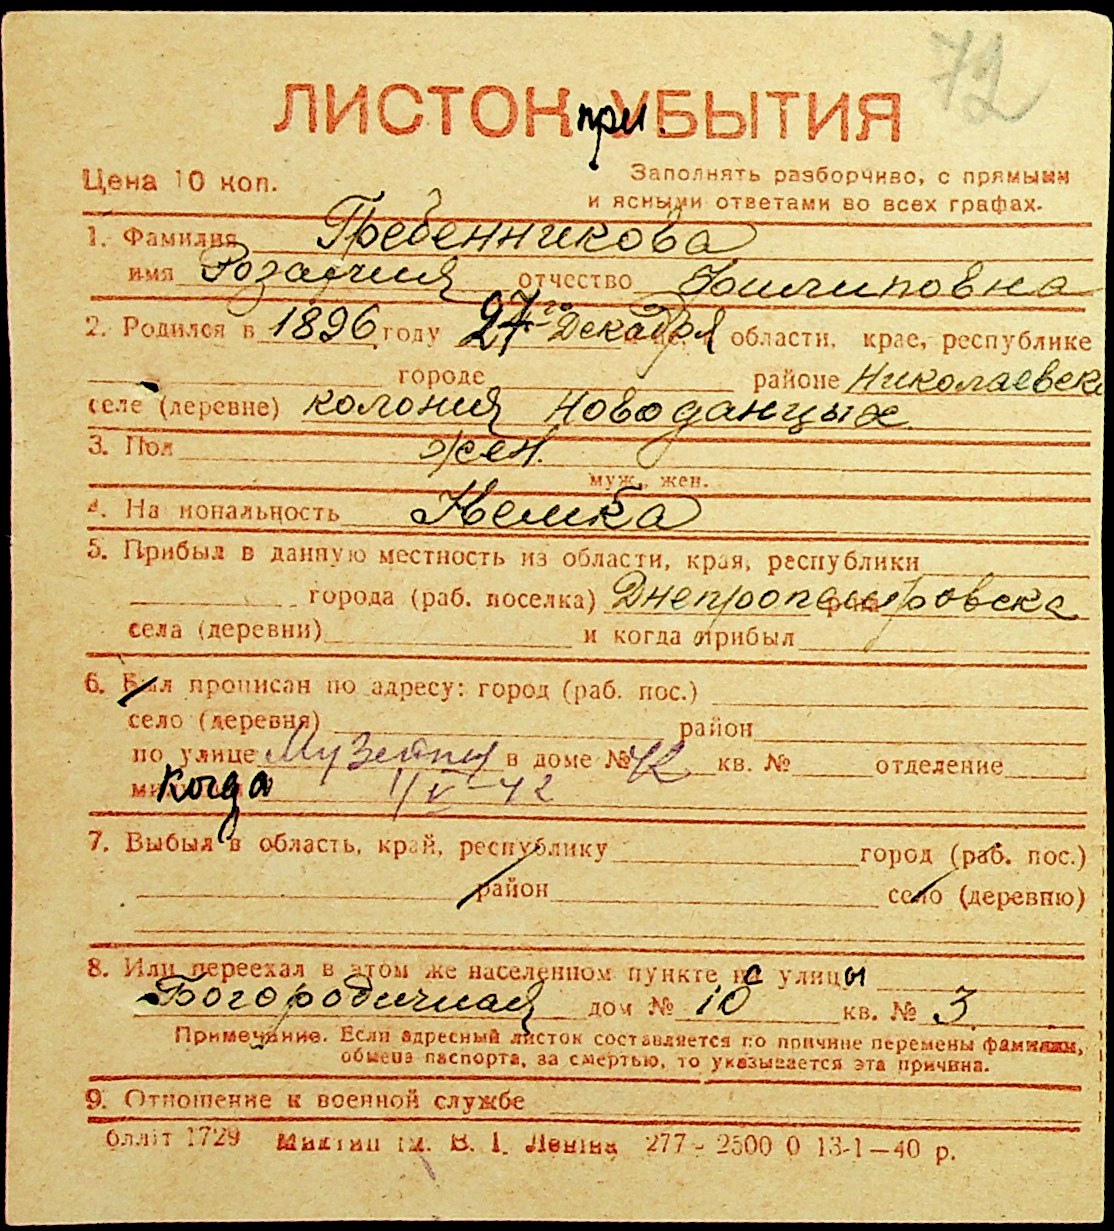 72
ЛИСТОК при УБЫТИЯ
Цена 10 коп.
Заполнять разборчиво, с прямыми
и ясными ответами во всех графах.
1. Фамилия Гребенникова
имя Розалия отчество Филиповна
2. Родился в 1896 году 27-го Декабря области, крае, республике
городе районе Николаевск
селе (деревне) колония Новоданцых
3. Пол жен.
муж., жен.
4. На иональность Немка
5. Прибыл в данную местность из области, края, республики
города (раб. поселка) Днепропетровска
села (деревни) и когда прибыл
6. Был прописан по адресу: город (раб. пос.)
село (деревня) район
по улице Музейный в доме № 12 кв. № отделение
когда 1/V-42
7. Выбыл в область, край, республику город (раб. пос.)
район село (деревню)
8. Или переехал в этом же населенном пункте с улицы
Богородичная дом № 10 кв. № 3
Примечание. Если адресный листок составляется по причине перемены фамилии,
обмена паспорта, за смертью, то указывается эта причина.
9. Отношение к военной службе
блліт 1729 ім. В. І. Леніна 277 - 2500 0 13-1—40 р.